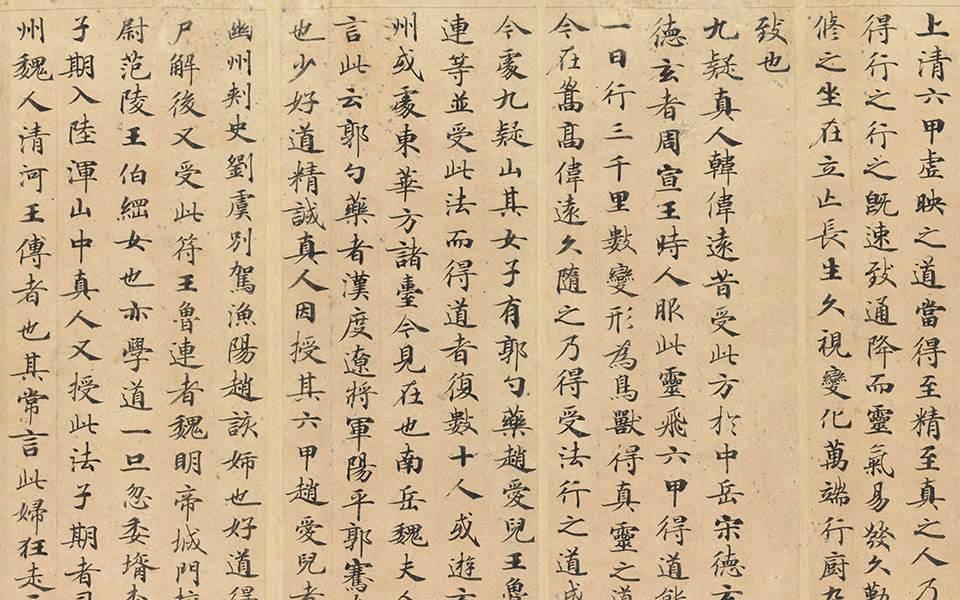 上清六甲虚映之道當得至精至真之人乃
得行之行之既速致通降而靈氣易發久勤
修之坐在立亡長生久視變化萬端行廚
致也
九疑真人韓偉遠昔受此方於中岳宋德玄
德玄者周宣王時人服此靈飛六甲得道能
一日行三千里數變形為鳥獸得真靈之道
今在嵩高偉遠久隨之乃得受法行之道成
今處九疑山其女子有郭勺藥趙愛兒王魯
連等並受此法而得道者復數十人或遊玄
州或處東華方諸臺今見在也南岳魏夫人
言此云郭勺藥者漢度遼將軍陽平郭騫
也少好道精誠真人因授其六甲趙愛兒者
幽州刺史劉虞別駕漁陽趙該姉也好道得
尸解後又受此符王魯連者魏明帝城門校
尉范陵王伯綱女也亦學道一旦忽委壻李
子期入陸渾山中真人又授此法子期者司
州魏人清河王傳者也其常言此婦狂走